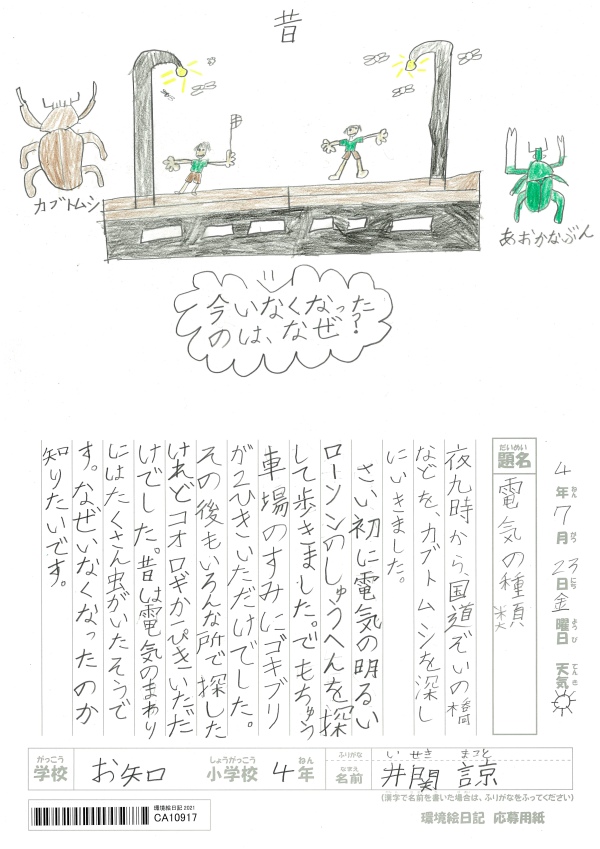 昔
カブトムシ
あおかなぶん
今いなくなった
のは、なぜ?
4年ねん7月がつ23日にち金曜日ようび 天気てんき
題名だいめい
電気の種類
夜九時から、国道ぞいの橋
などを、カブトムシを深し
にいきました。
さい初に電気の明るい
ローソンのしゅうへんを探
して歩きました。でもちゅう
車場のすみにゴキブリ
が2ひきいただけでした。
その後もいろんな所で探した
けれどコオロギが一ぴきいただ
けでした。昔は電気のまわり
にはたくさん虫がいたそうで
す。なぜいなくなったのか
知りたいです。
がっこう しょうがっこう ねん ふりがな いせき まこと
学校 お矢口 小学校 4年 なまえ 名前 井関 諒
(漢字で名前を書いた場合は、ふりがなをふってください)
環境絵日記 2021
CA10917
環境絵日記 応募用紙